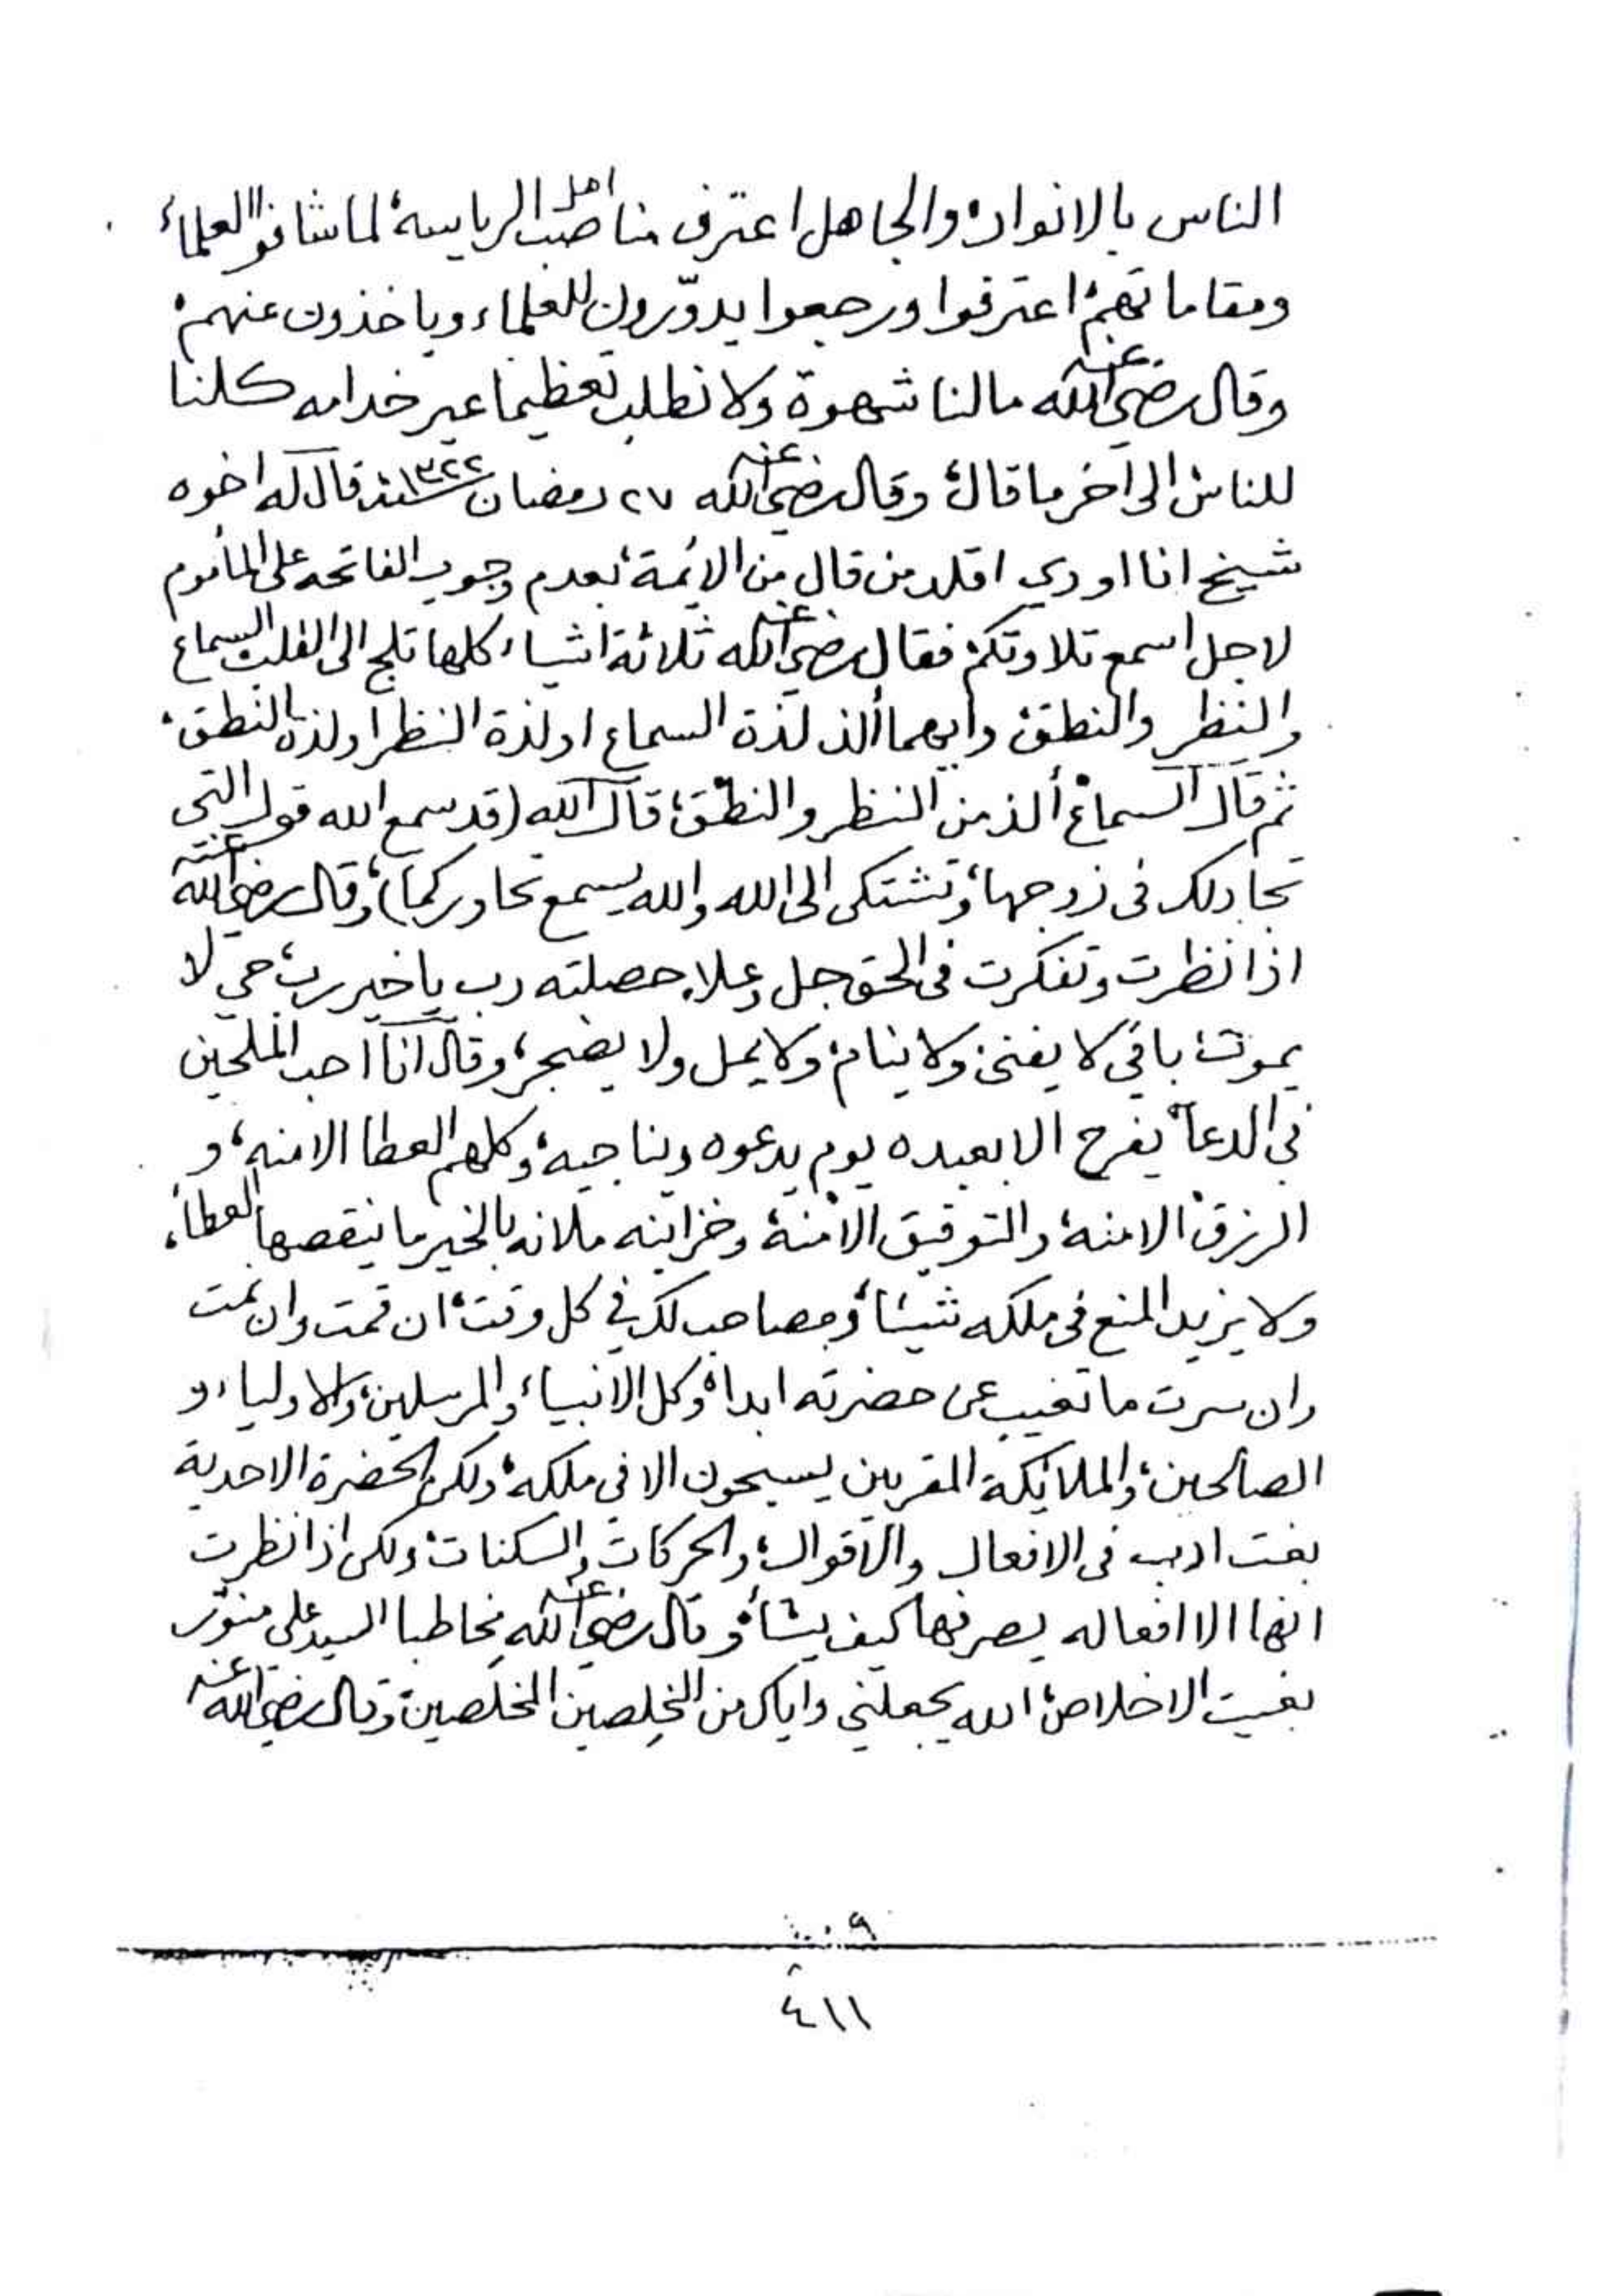 الناس بالانوار، والجاهل اعترف اهل مناصب الرياسة، لما شافوا العلماء
ومقاماتهم، اعترفوا ورجعوا يدوّرون للعلماء وياخذون عنهم،
وقال رضي الله عنه مالنا شهوة ولا نطلب تعظيما عير خدامه كلنا
للناس الى آخر ما قال، وقال رضي الله عنه ٢٧ رمضان سنة ١٣٢٢ قال له اخوه
شيخ انا اودي اقلد من قال من الائمة، بعدم وجوب الفاتحه على المأموم
لاجل اسمع تلاوتكم، فقال رضي الله عنه ثلاثة اشياء كلها تلج الى القلب السماع
والنظر والنطق، وايهما ألذ لذة السماع او لذة النظر او لذة النطق،
ثم قال السماع ألذ من النظر والنطق، قال الله (قد سمع الله قول التي
تجادلك في زوجها، وتشتكى الى الله والله يسمع تحاوركما)، وقال رضي الله عنه
اذا نظرت وتفكرت في الحق جل وعلا، حصلته رب يا خير رب، حي لا
يموت، باقي لا يفنى، ولا ينام، ولا يمل ولا يضجر، وقال انا احب الملحين
في الدعاء، يفرح الا بعبده يوم يدعوه ويناجيه، وكلهم العطا الا منه، و
الرزق الا منه، والتوفيق الا منه، وخزاينه ملانه بالخير ما ينقصها العطاء،
ولا يزيد المنع في ملكه شيئا، ومصاحب لك في كل وقت، ان قمت وان نمت
وان سرت ما تغيب عن حضرته ابدا، وكل الانبياء والمرسلين، والاولياء و
الصالحين، والملائكة المقربين يسبحون الا في ملكه، ولكن الحضرة الاحدية
بغت ادب في الافعال والاقوال، والحركات والسكنات، ولكن اذا نظرت
انها الا افعاله يصرفها كيف يشاء، وقال رضي الله عنه مخاطبا السيد علي منوّر
بغيت الاخلاص، الله يجعلني واياك من المخلِصين المخلَصين، وقال رضي الله عنه
٤١١